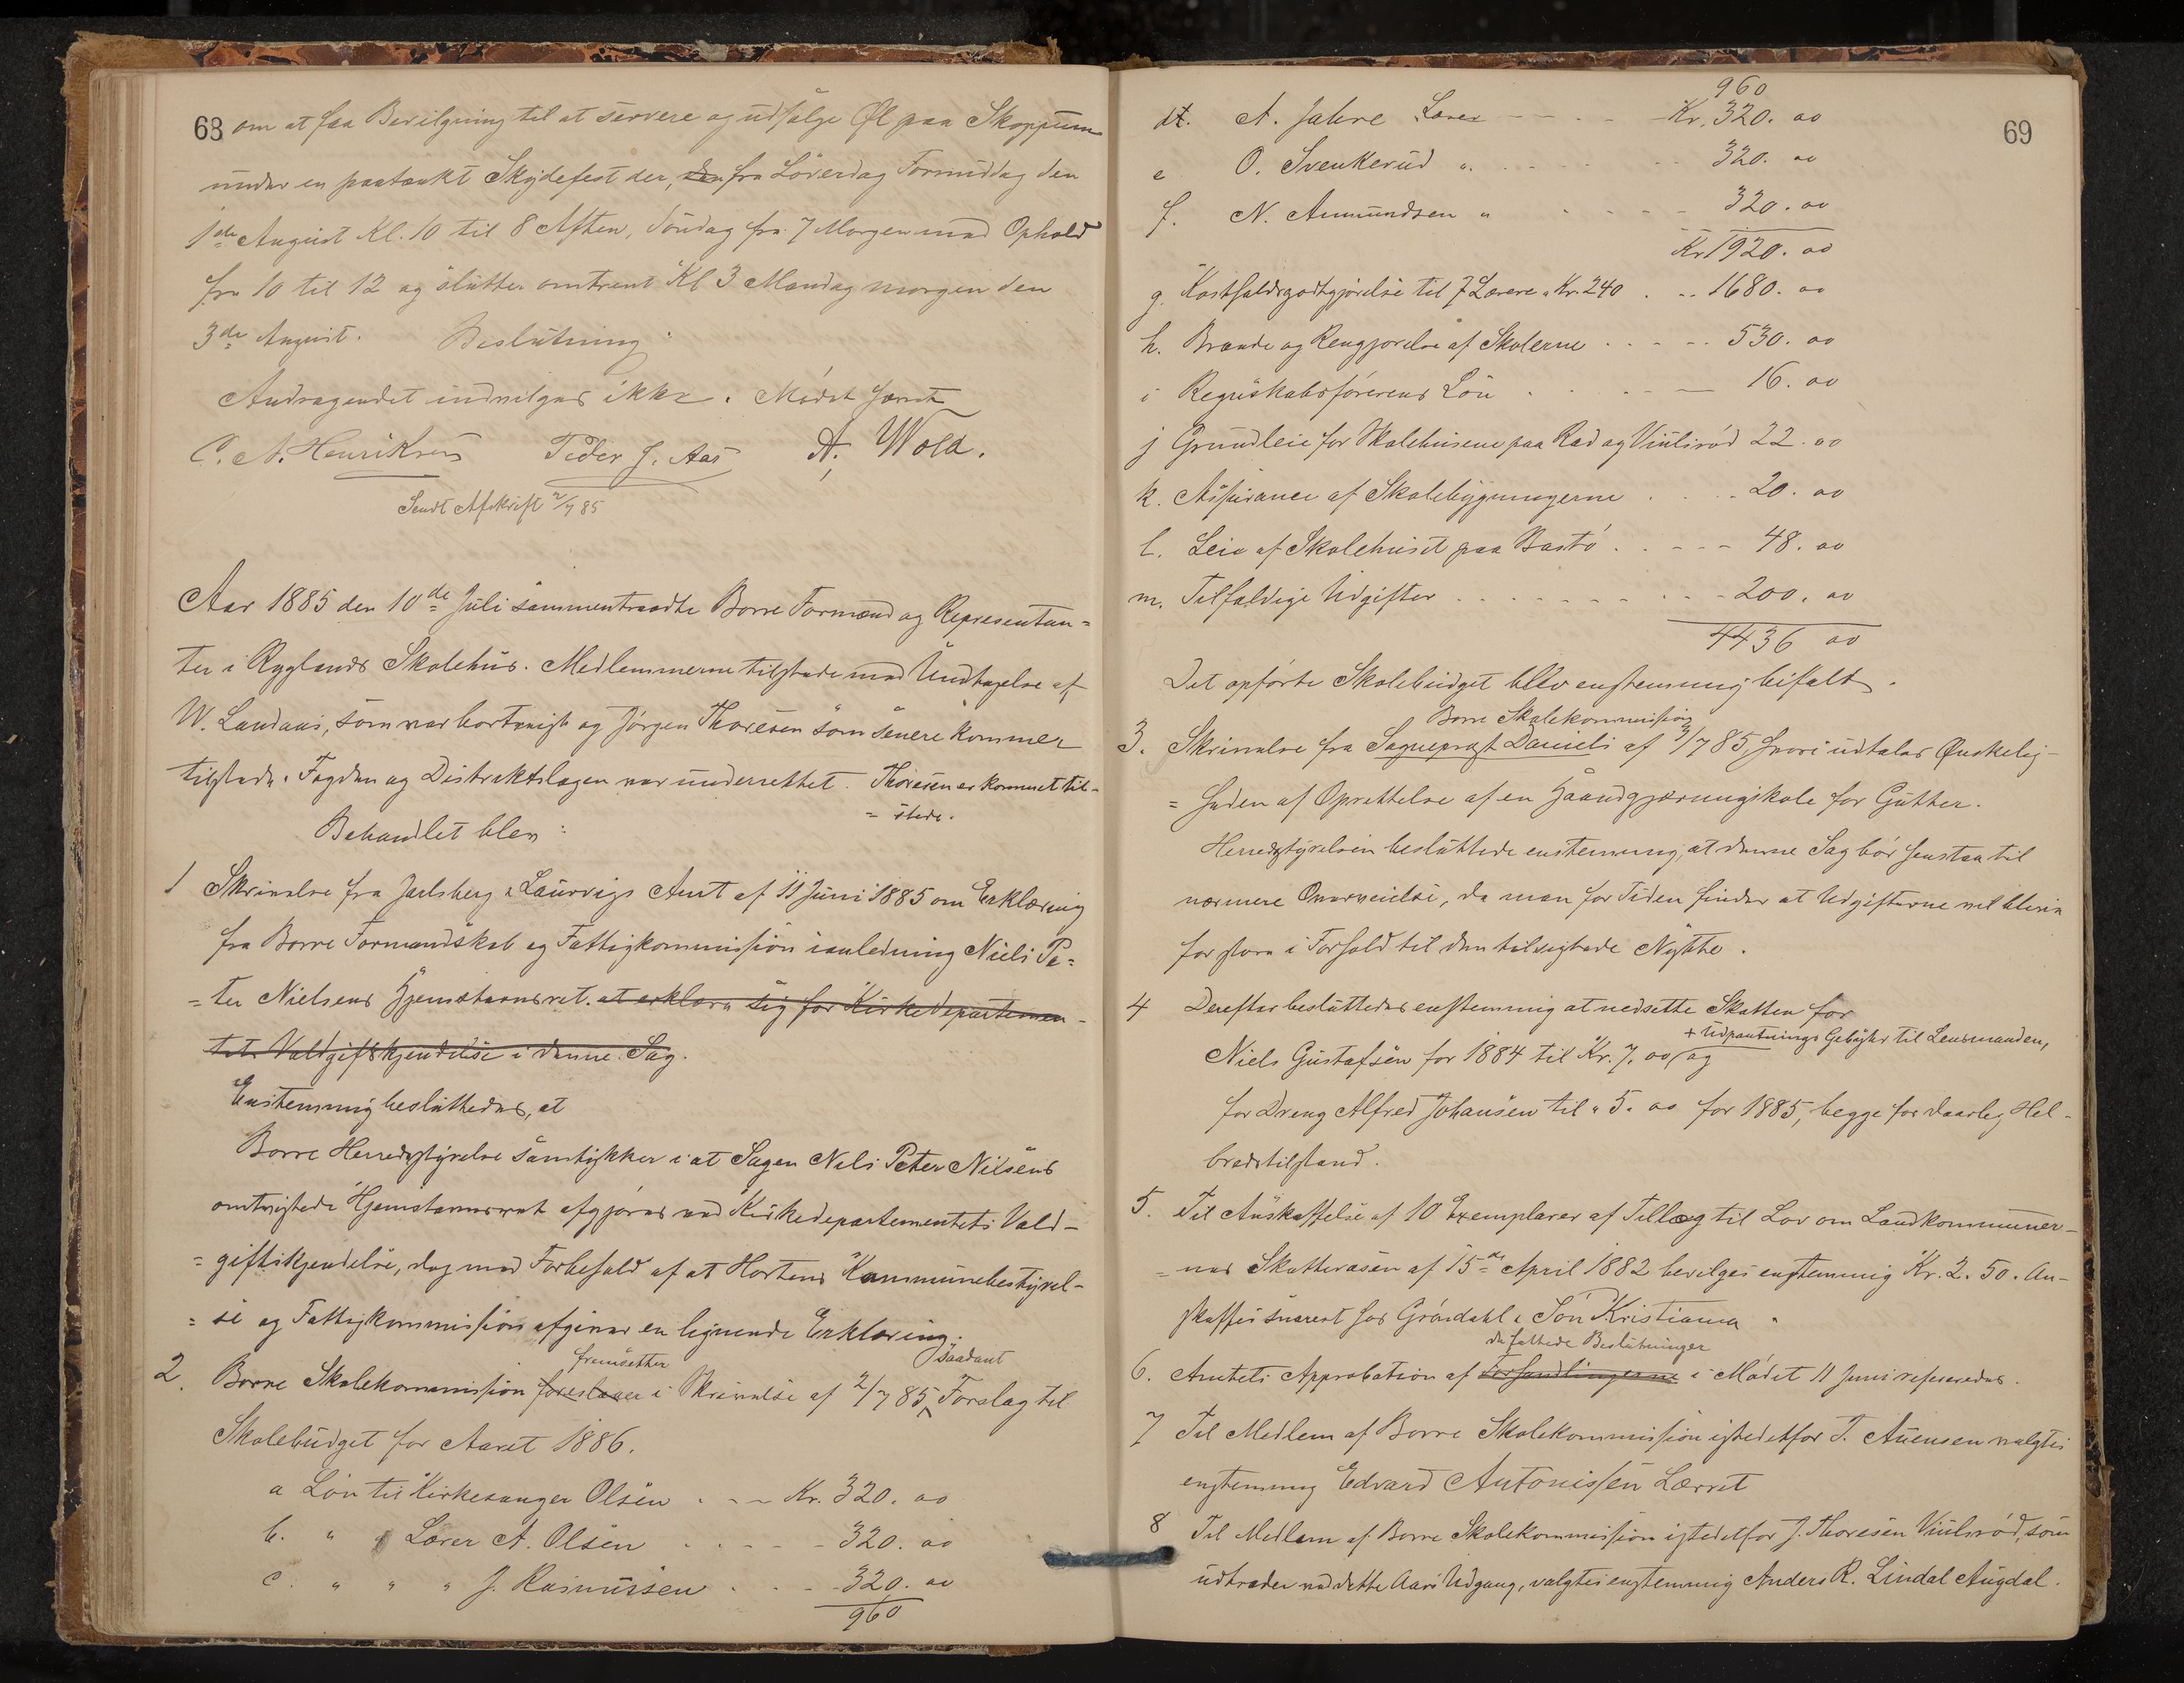 68 om at faa Bevilgning til at servere og udsælge Øl paa Skoppum
under en paatænkt Skydefest der, den fra Löverdag Formiddag den
1ste August Kl. 10 til 8 Aften, Söndag fra 7 Morgen med Ophold
fra 10 til 12 og slutter omtrent Kl 3 Mandag morgen den
3de August. Beslutning:
Andragendet indvilges ikke. Mödet hævet
C. A. Henriksen Peder J. Aas A. Wold.
Sendt Afskrift 2/7 85
Aar 1885 den 10de Juli sammentraadte Borre Formænd og Representan=
ter i Ryglands Skolehus. Medlemmerne tilstede med Undtagelse af
W. Landaas, som var bortreist og Jörgen Thoresen som senere kommer
tilstede. Fogden og Distriktslægen var underrettet. Thoresen er kommet til=
= stede.
Behandlet blev:
1 Skrivelse fra Jarlsberg & Laurvigs Amt af 11 Juni 1885 om Erklæring
fra Borre Formandskab og Fattigkommission ianledning Niels Pe=
=ter Nielsens Hjemstavnsret. at erklære sig for Kirkedepartemen-
tets Voldgiftskjendelse i denne Sag.
Enstemmig besluttedes, at
Borre Herredsstyrelse samtykker i at Sagen Nils Peter Nilsens
omtvistede Hjemstavnsret afgjöres ved Kirkedepartementets Vold-
= giftskjendelse, dog med Forbehold af at Hortens Kommunebestyrel-
= se og Fattigkommission afgiver en lignende Erklæring.
fremsetter saadant
2. Borre Skolekommission foreslaaer i Skrivelse af 2/7 85, Forslag til
Skolebudget for Aaret 1886.
a Lön til Kirkesanger Olsen . - - Kr. 320. 00
b. " " Lærer A. Olsen . . - - - 320. 00
c. " " " J. Rasmussen . . - - 320. 00
960
69
960
d. A. Jahre Lærer - - - . - Kr. 320. 00
e O. Svenkerud " . - - - - 320. 00
f. N. Amundsen " . - - - - 320. 00
Kr 1920. 00
g. Kostholdsgodtgjörelse til 7 Lærere a Kr. 240 . . . 1680. 00
h. Brænde og Rengjörelse af Skolerne . . - - 530. 00
i Regnskabsförerens Lön . . . - - 16. 00
j Grundleie for Skolehusene paa Rad og Viulsröd 22. 00
k. Assurance af Skolebygningerne . . - 20. 00
l. Leie af Skolehuset paa Bastö . . - - - 48. 00
m. Tilfældige Udgifter . . - - - - - - - 200. 00
4436 00
Det opförte Skolebudget blev enstemmig bifaldt.
Borre Skolekommission
3. Skrivelse fra Sogneprest Daniels af 3/7 85, hvori udtales Ønskelig-
= heden af Oprettelse af en Haandgjerningskole for Gutter.
Herredsstyrelsen besluttede enstemmig, at denne Sag bör henstaa til
nærmere Overveielse, da man for Tiden finder at Udgifterne vil blive
for store i Forhold til den tilsigtede Nytte.
4 Derefter besluttedes enstemmig at nedsette Skatten for
+ Udpantnings Gebyhr til Lensmanden,
Niels Gustafsen for 1884 til Kr. 7. 00, og
for Dreng Alfred Johansen til " 5. 00 for 1885, begge for daarlig Hel-
bredstilstand.
5. Til Anskaffelse af 10 Exemplarer af Tillæg til Lov om Landkommuner-
= nes Skattevæsen af 15de April 1882 bevilges enstemmig Kr. 2. 50. An-
skaffes snarest hos Gröndahl & Sön Kristiania.
de fattede Beslutninger
6. Amtets Approbation af Forhandlingerne i Mödet 11 Juni refereredes.
7 Til Medlem af Borre Skolekommission istedetfor T. Auensen valgtes
enstemmig Edvard Antonissen Lærret
8 Til Medlem af Borre Skolekommission istedetfor J. Thoresen Viulsröd, som
udtræder ved dette Aars Udgang, valgtes enstemmig Anders R. Lindal Augdal.